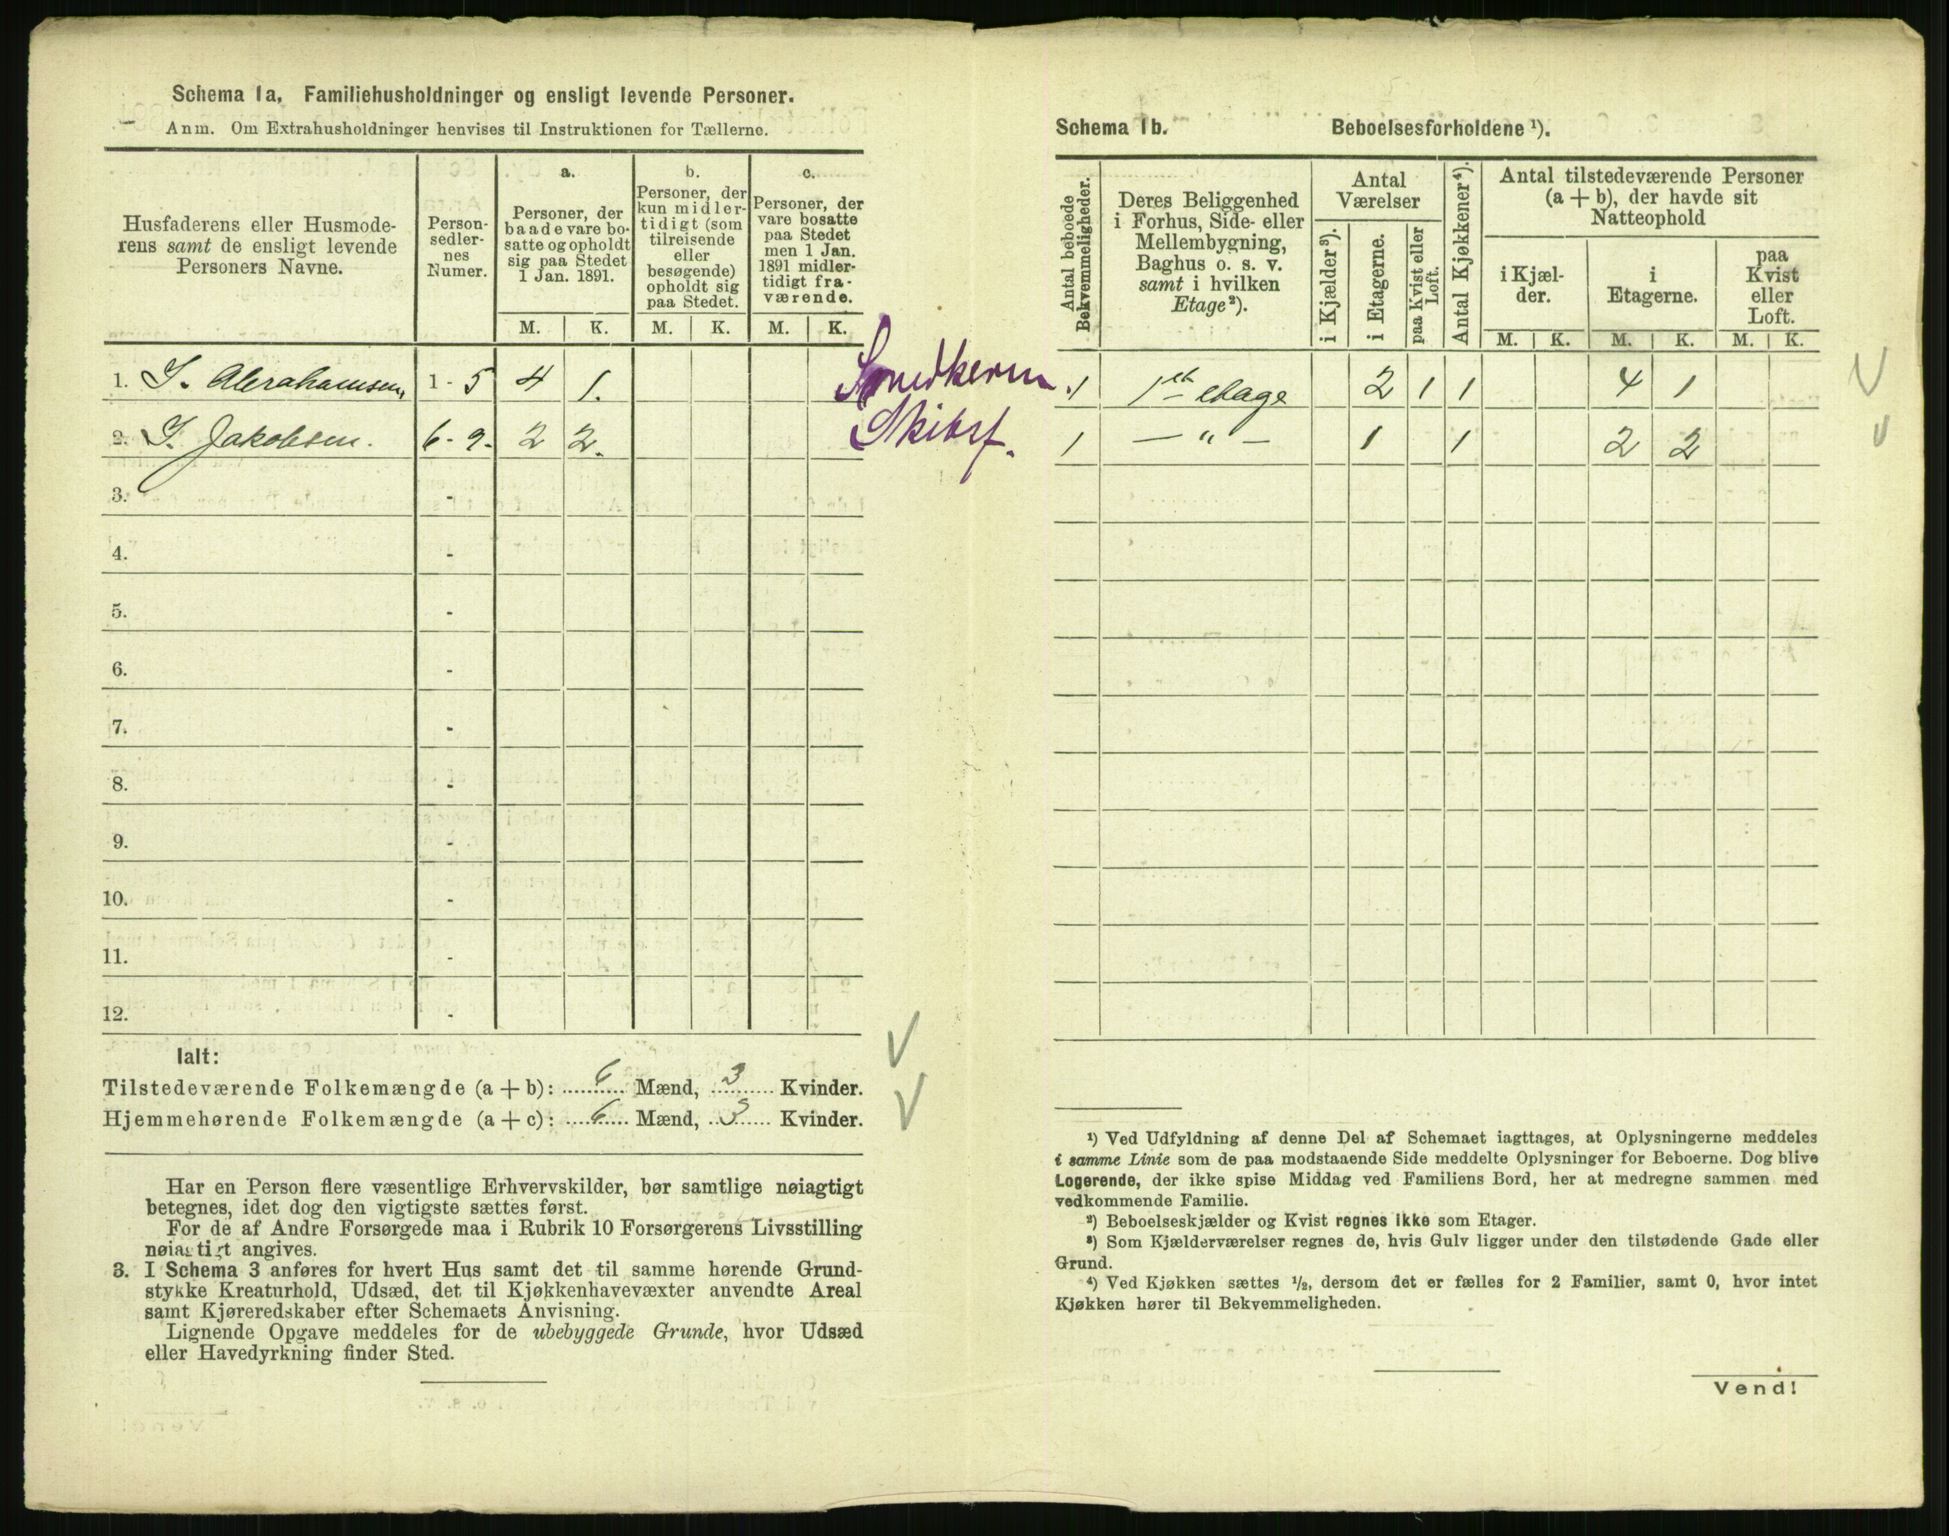 Schema 1a. Familiehusholdninger og ensligt levende Personer.
Anm. Om Extrahusholdninger henvises til Instruktionen for Tællerne.
Husfaderens eller Husmoderens samt de ensligt levende Personers Navne.
Personsedlernes Numer.
a.
Personer, der baade vare bosatte og opholdt sig paa Stedet 1 Jan. 1891.
b.
Personer, der kun midlertidigt (som tilreisende eller besøgende) opholdt sig paa Stedet.
c.
Personer, der vare bosatte paa Stedet men 1 Jan. 1891 midlertidigt fraværende.
M. K. M. K. M. K.
1. I. Abrahamsen, 1 - 5 4 1.
2. I. Jakobsen. 6 - 9. 2 2.
3. -
4. -
5. -
6. -
7. -
8. -
9. -
10. -
11. -
12. -
Ialt:
Tilstedeværende Folkemængde (a + b): 6 Mænd, 3 Kvinder.
Hjemmehørende Folkemængde (a + c): 6 Mænd, 3 Kvinder.
Har en Person flere væsentlige Erhvervskilder, bør samtlige nøiagtigt
betegnes, idet dog den vigtigste sættes først.
For de af Andre Forsørgede maa i Rubrik 10 Forsørgerens Livsstilling
nøiagtigt angives.
3. I Schema 3 anføres for hvert Hus samt det til samme hørende Grund-
stykke Kreaturhold, Udsæd, det til Kjøkkenhavevæxter anvendte Areal
samt Kjøreredskaber efter Schemaets Anvisning.
Lignende Opgave meddeles for de ubebyggede Grunde, hvor Udsæd
eller Havedyrkning finder Sted.
Schema 1b. Beboelsesforholdene ¹).
Antal beboede Bekvemmeligheder.
Deres Beliggenhed i Forhus, Side- eller Mellembygning, Baghus o. s. v. samt i hvilken Etage²).
Antal Værelser
i Kjælder³).
i Etagerne.
paa Kvist eller Loft.
Antal Kjøkkener⁴).
Antal tilstedeværende Personer (a + b), der havde sit Natteophold
i Kjælder.
i Etagerne.
paa Kvist eller Loft.
M. K. M. K. M. K.
1 1ste etage 2 1 1 4 1
Skibsf.
1 — „ — 1 1 2 2
¹) Ved Udfyldning af denne Del af Schemaet iagttages, at Oplysningerne meddeles
i samme Linie som de paa modstaaende Side meddelte Oplysninger for Beboerne. Dog blive
Logerende, der ikke spise Middag ved Familiens Bord, her at medregne sammen med
vedkommende Familie.
²) Beboelseskjælder og Kvist regnes ikke som Etager.
³) Som Kjælderværelser regnes de, hvis Gulv ligger under den tilstødende Gade eller
Grund.
⁴) Ved Kjøkken sættes ½, dersom det er fælles for 2 Familier, samt 0, hvor intet
Kjøkken hører til Bekvemmeligheden.
Vend!